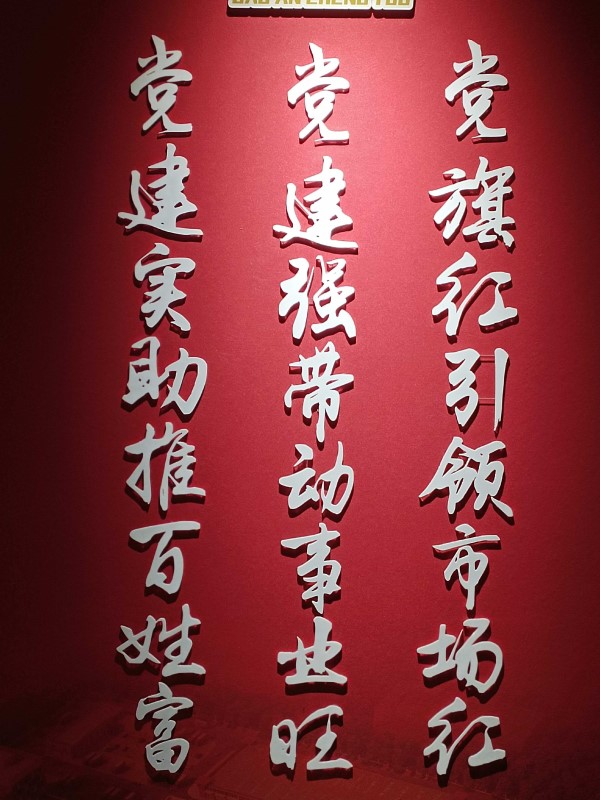 党旗红引领市场红
党建强带动事业旺
党建实助推百姓富